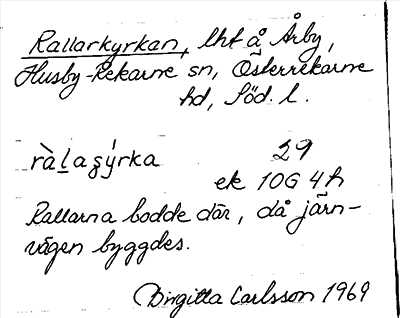 Rallarkyrkan, lht å Årby,
Husby-Rekarne sn, Österrekarne
hd, Söd. l.
29
ek 10G 4h
Rallarna bodde där, då järn-
vägen byggdes.
Birgitta Carlsson 1969